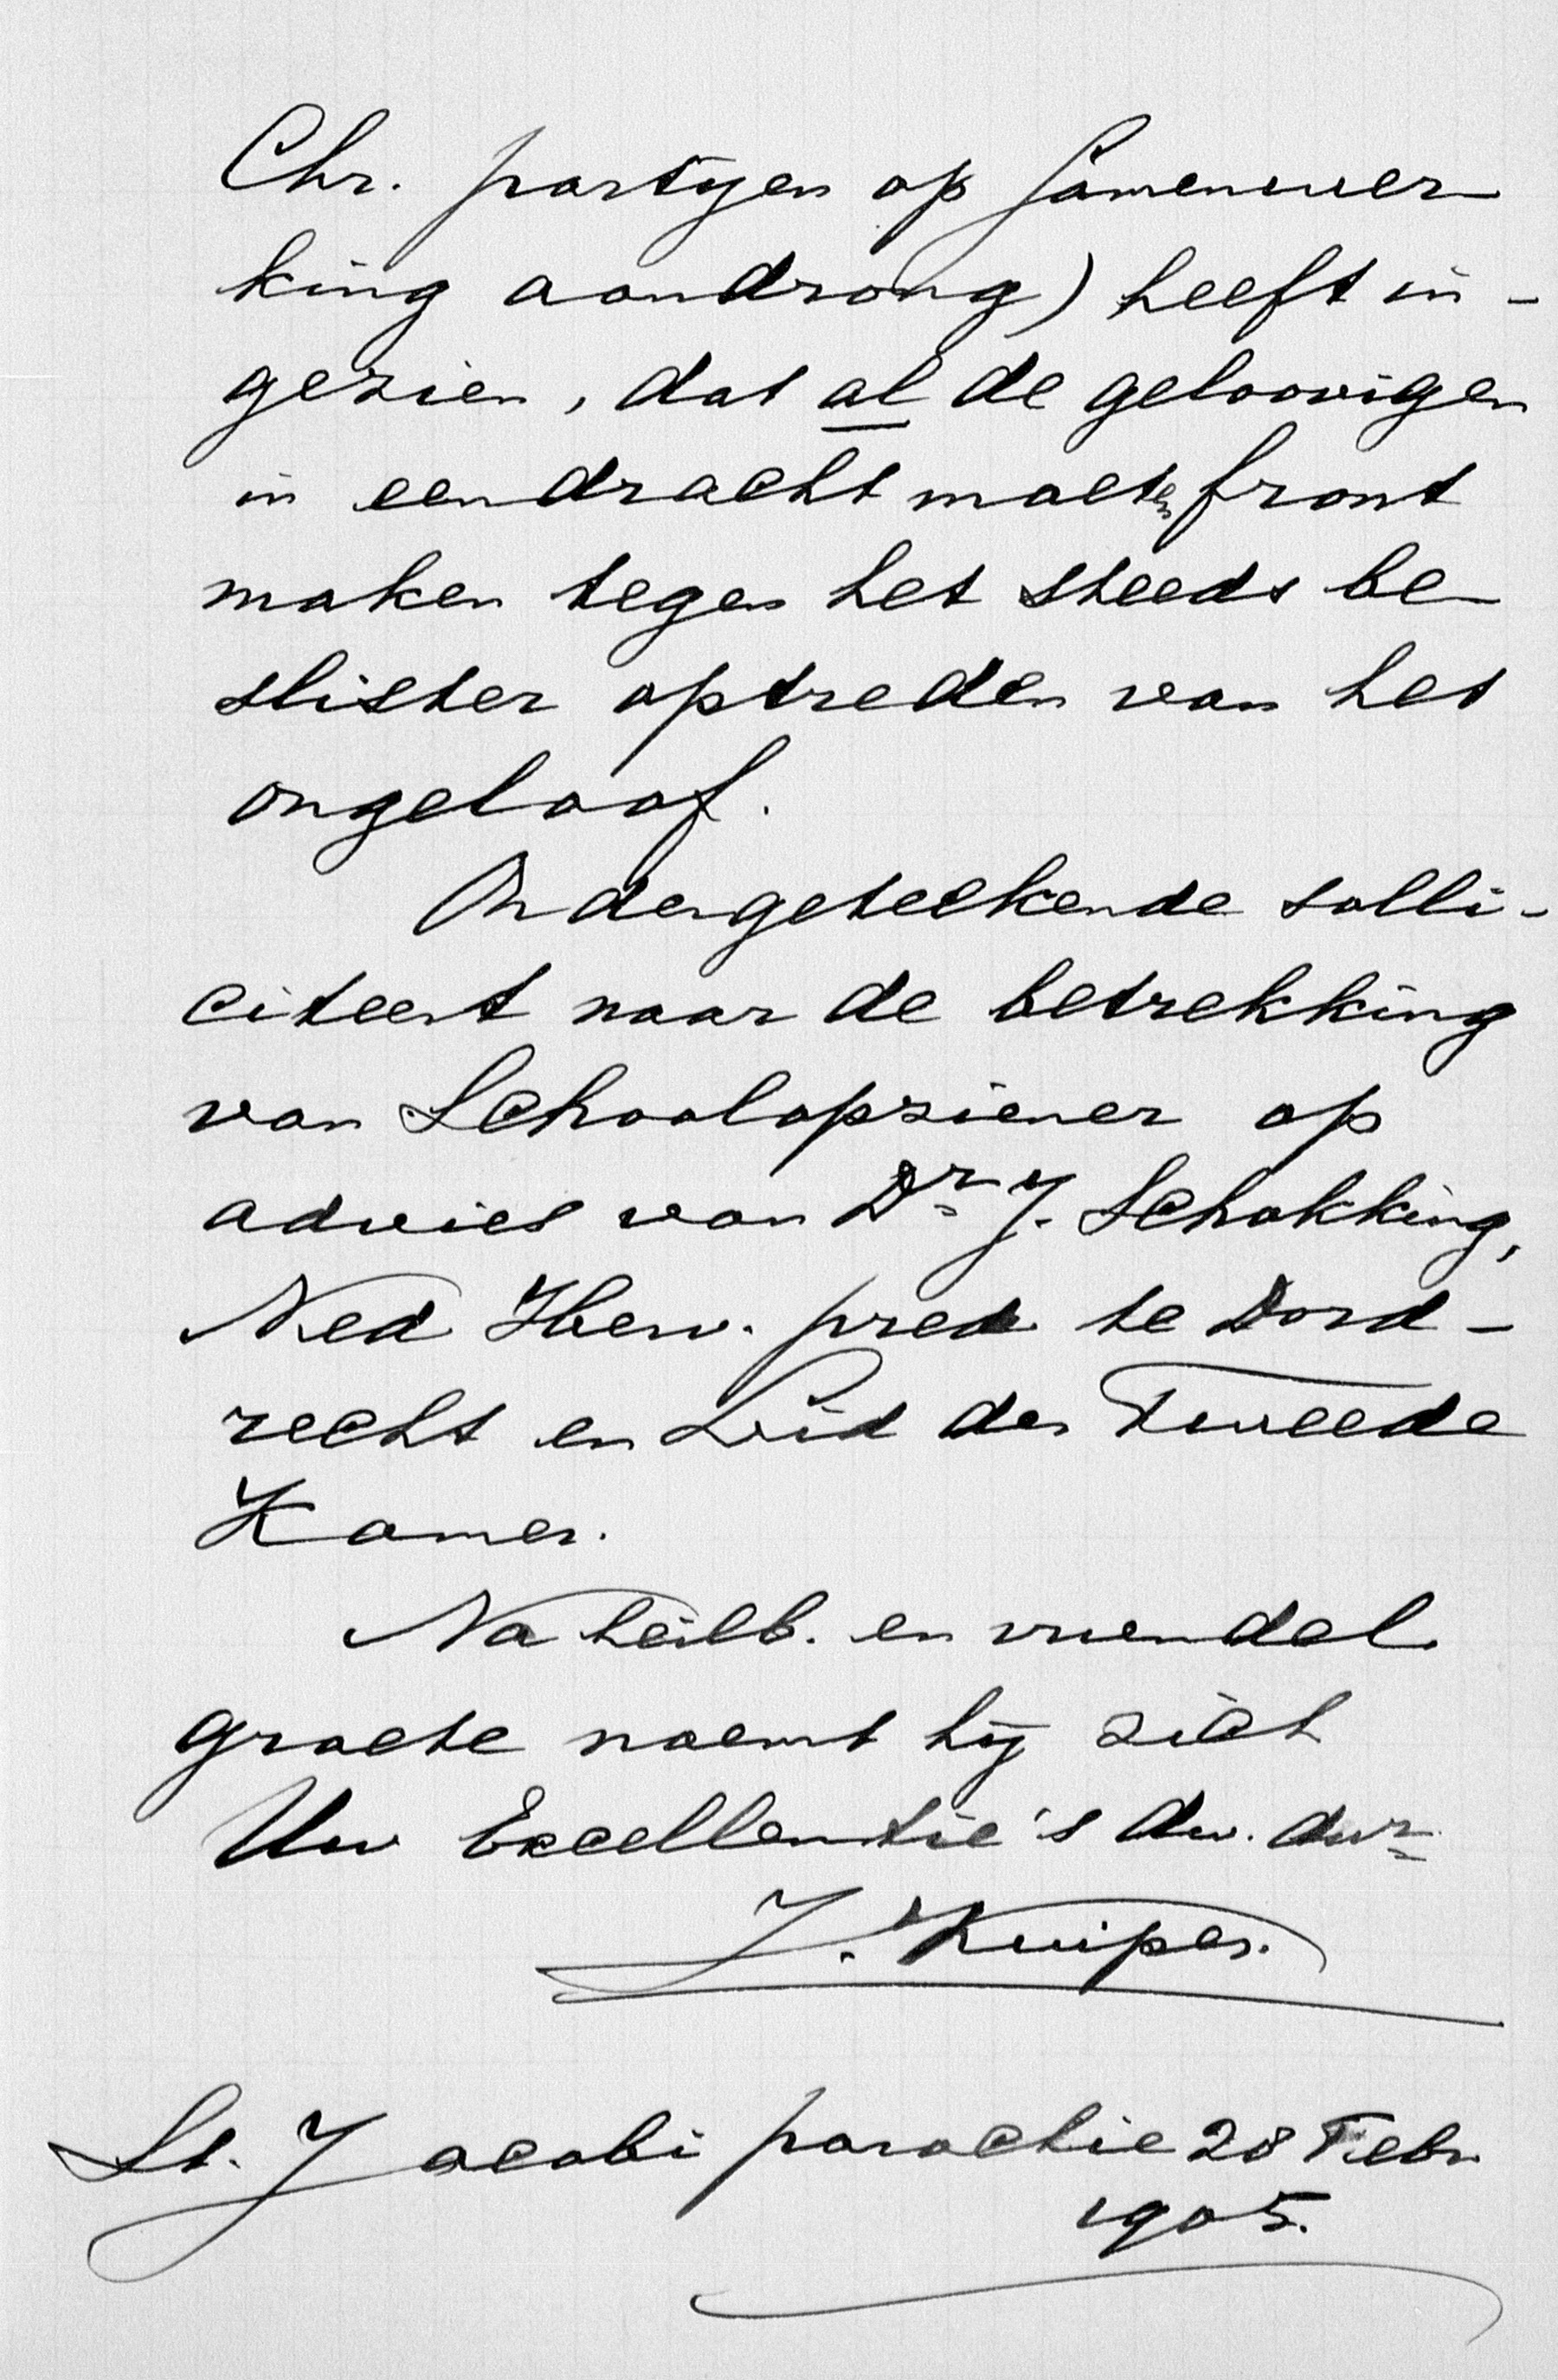 Chr. partijen op samenwer-
king aandrong) heeft in-
gezien, dat al de geloovigen
in eendracht moeten front
maken tegen het steeds be-
slister optreden van het
ongeloof.
Ondergeteekende solli-
citeert naar de betrekking
van Schoolopziener op
advies van Dr J. Schokking,
Ned Herv. pred te Dord-
recht en Lid der Tweede
Kamer.
Na heilb. en vriendel.
groete noemt hij zich
Uw Excellentie's dw. dnr
J. Kuiper.
St. Jacobi parochie 28 Febr.
1905.